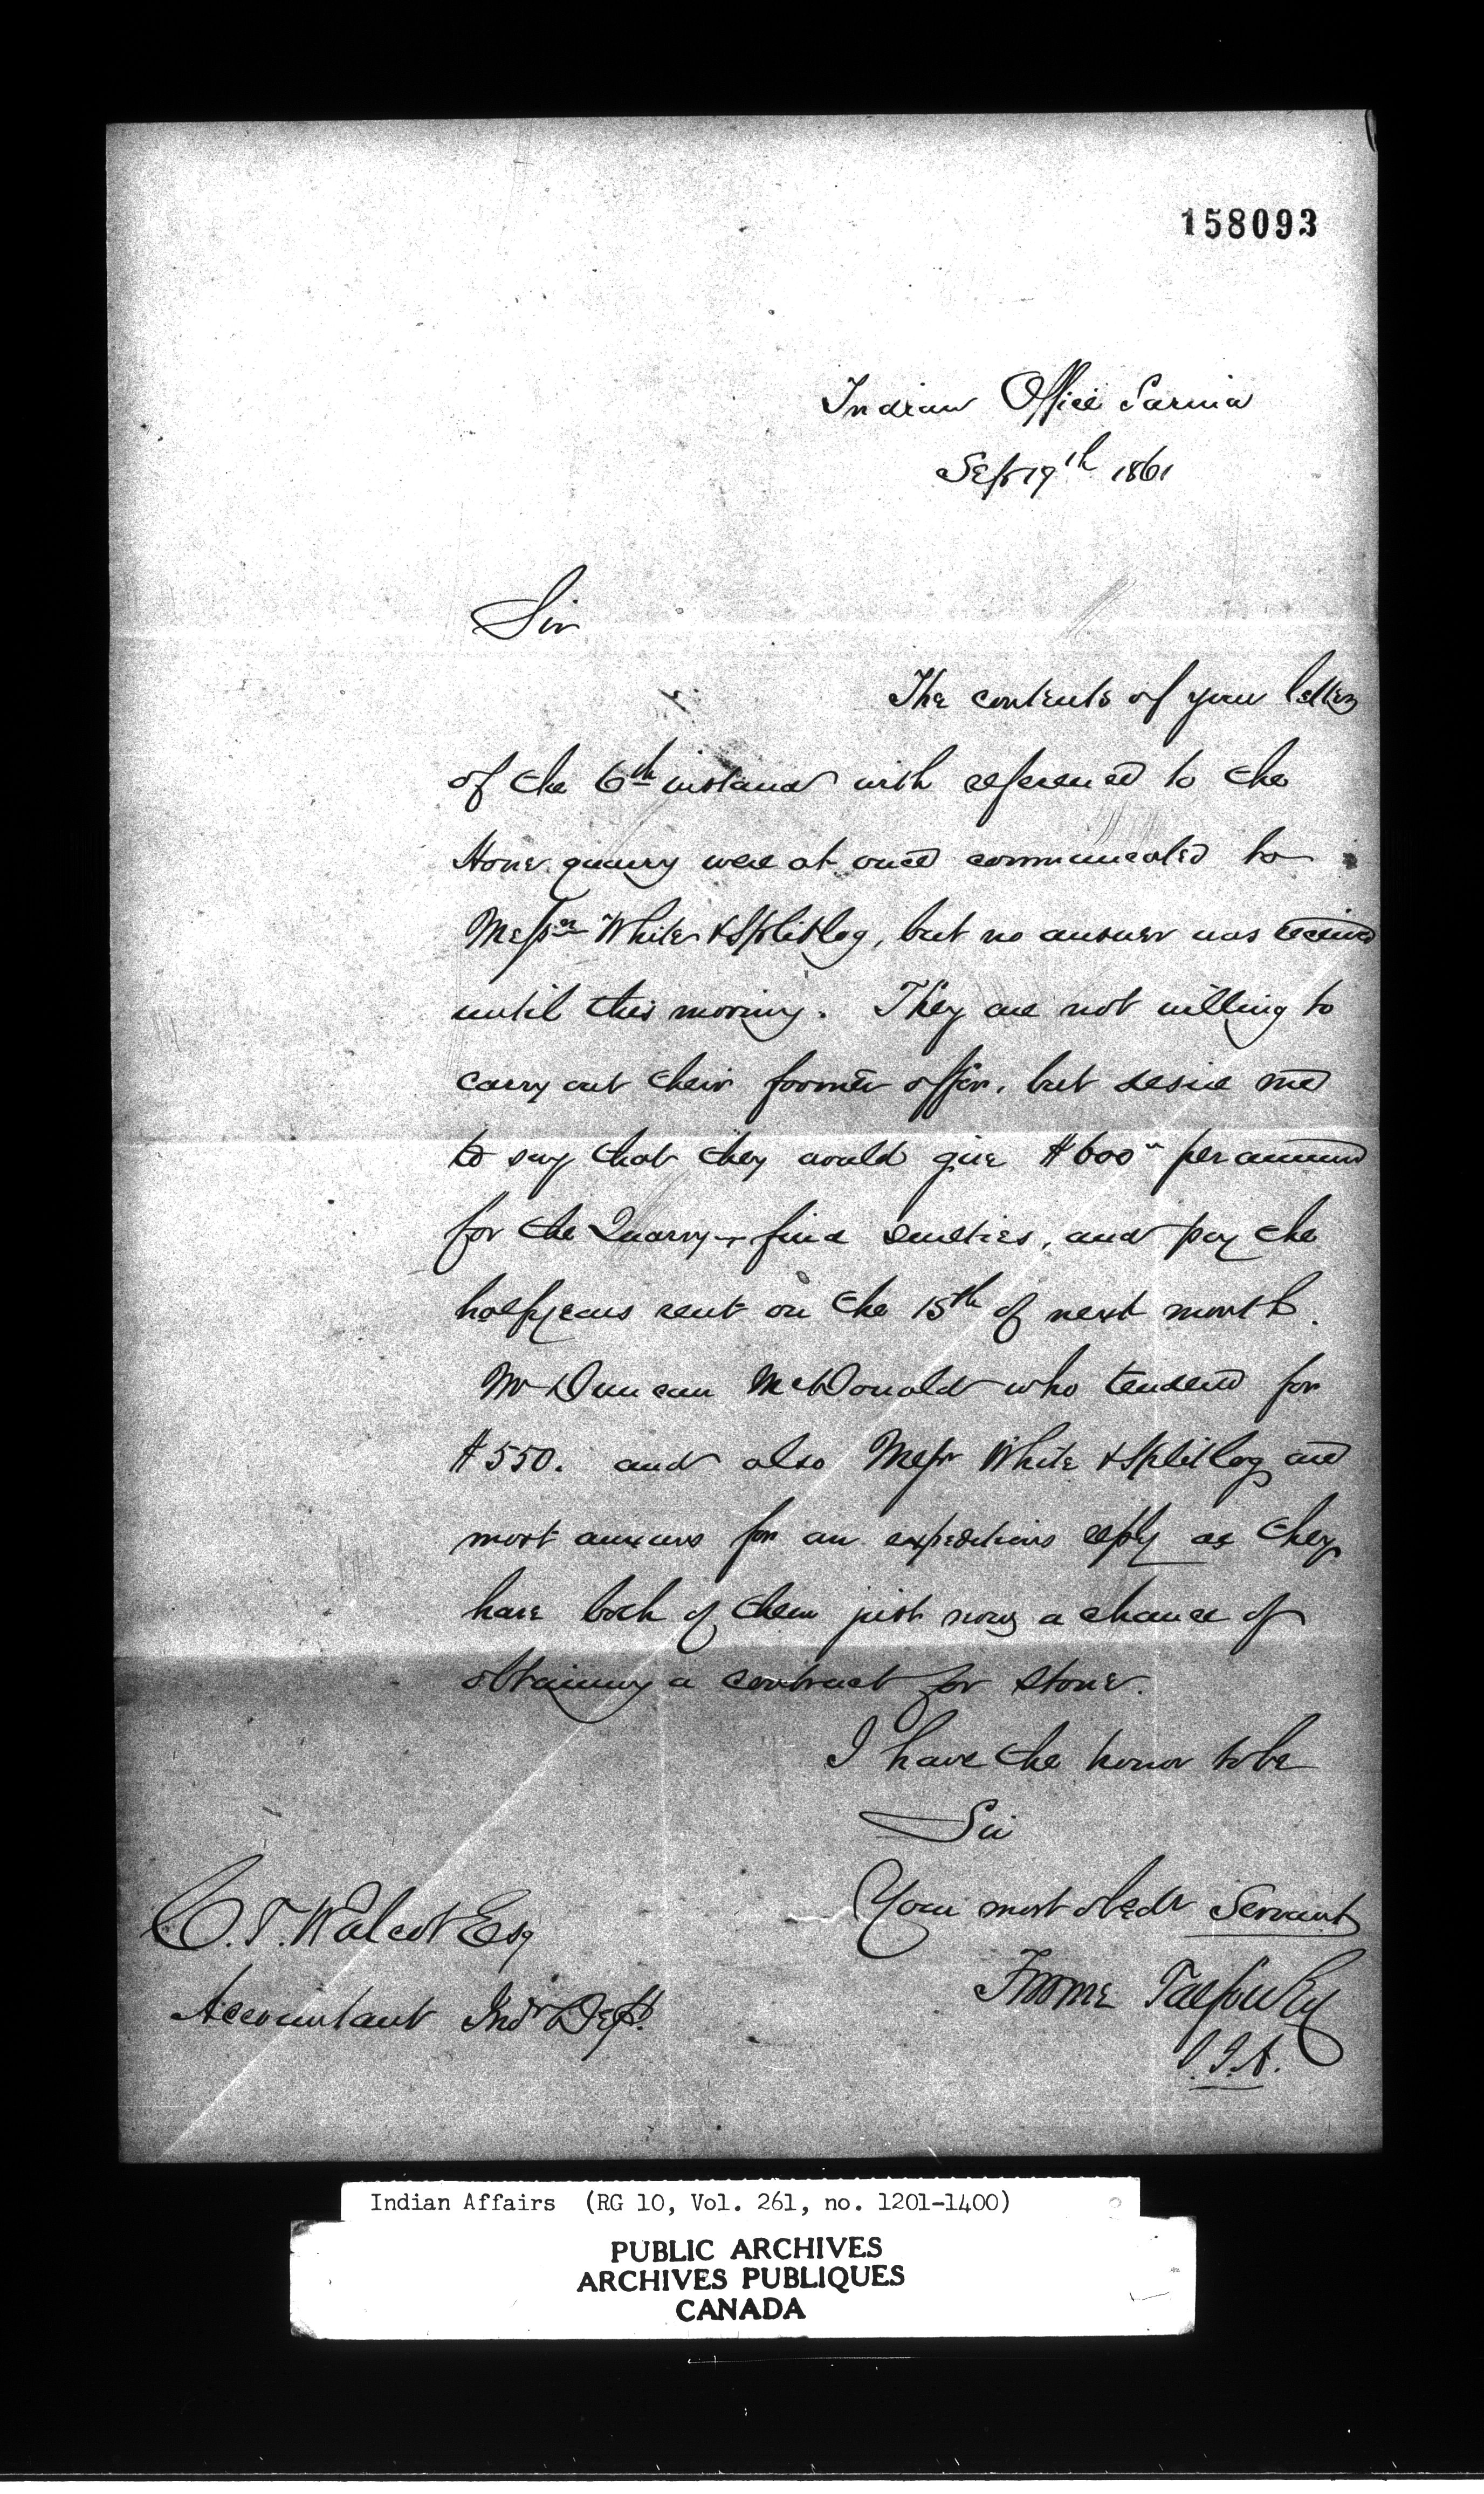 158093
Indian Office Sarnia
Sept 19th 1861
Sir
The contents of your letter
of the 6th instant with reference to the
Stone quarry were at once communicated to
Messrs White & Splitlog, but no answer was received
until this morning. They are not willing to
carry out their former offer, but desire me
to say that they would give $600 per annum
for the Quarry & find sureties, and pay the
half years rent on the 15th of next month.
Mr Duncan McDonald who tendered for
$550. and also Messrs White & Splitlog are
most anxious for an expeditious reply as they
have both of them just now a chance of
obtaining a contract for stone.
I have the honor to be
Sir
Your most obedt Servant
Froome Talfourd
C. T. Walcot Esq
Accountant Indn Dept.
Indian Affairs (RG 10, Vol. 261, no. 1201-1400)
PUBLIC ARCHIVES
ARCHIVES PUBLIQUES
CANADA